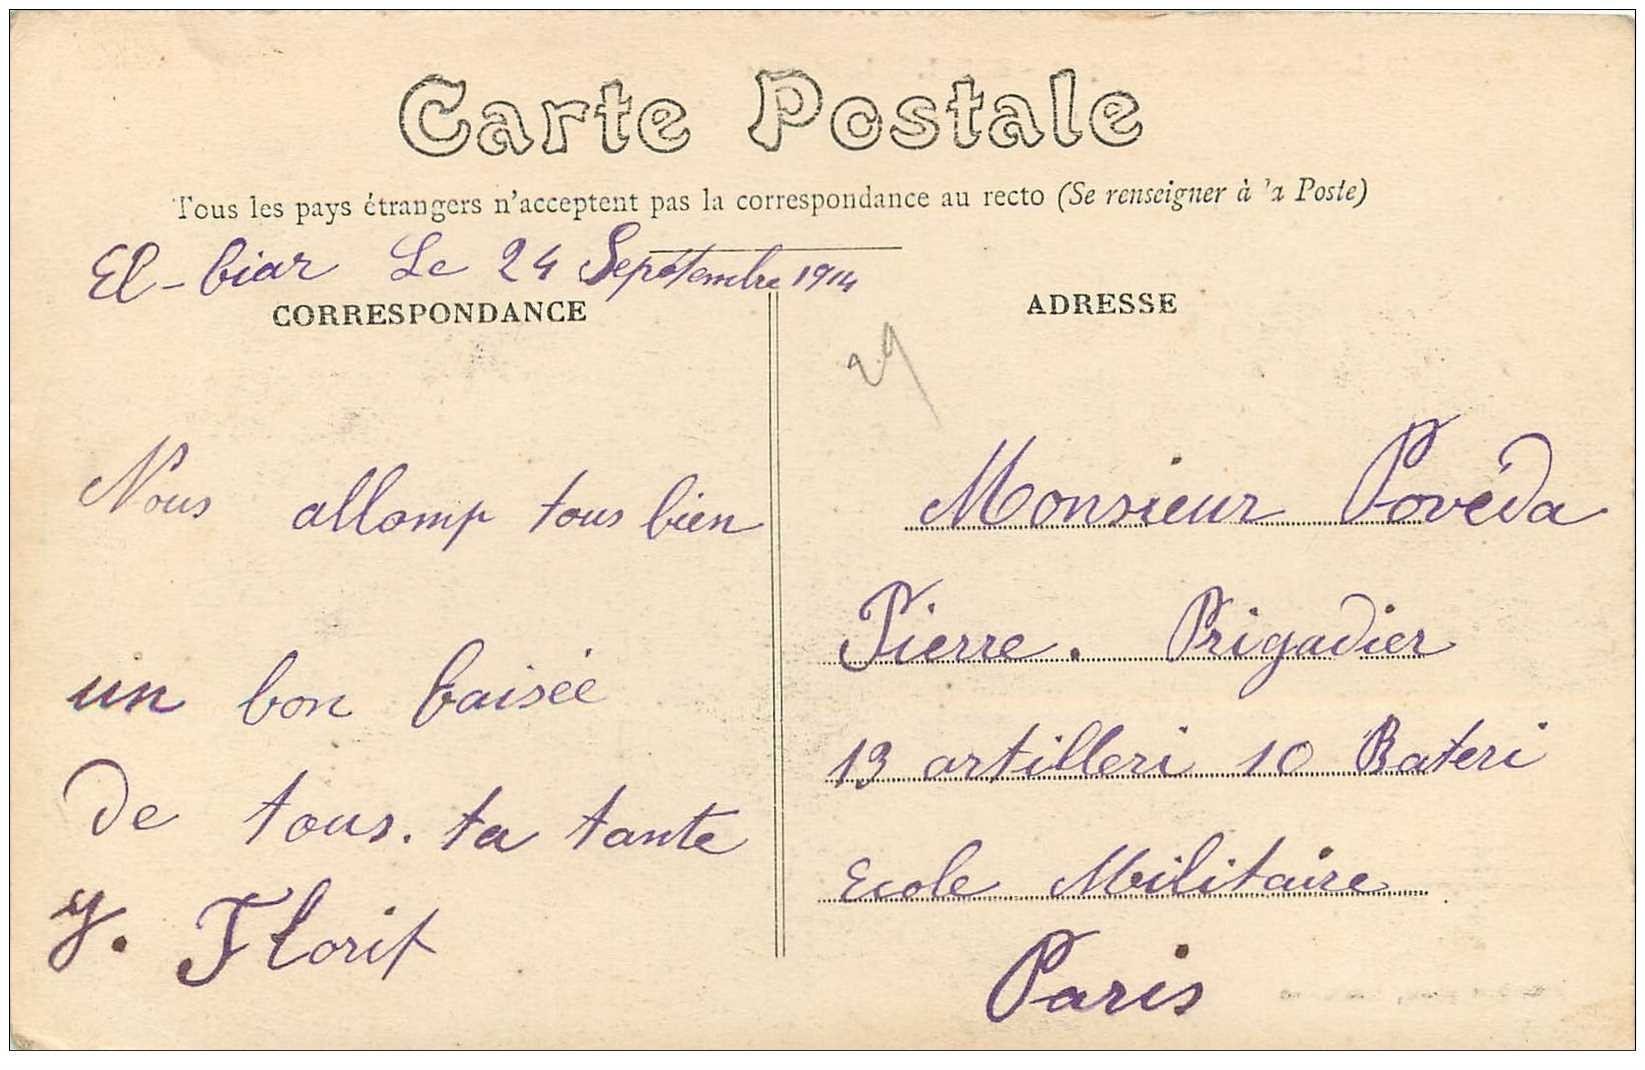 Carte Postale
Tous les pays étrangers n'acceptent pas la correspondance au recto (Se renseigner à la Poste)
El-biar Le 24 Septembre 1914
CORRESPONDANCE
Nous allomp tous bien
un bon baisée
de tous. ta tante
y. Florit
ADRESSE
29
Monsieur Povéda
Pierre. Brigadier
13 artilleri 10 Bateri
Ecole Militaire
Paris